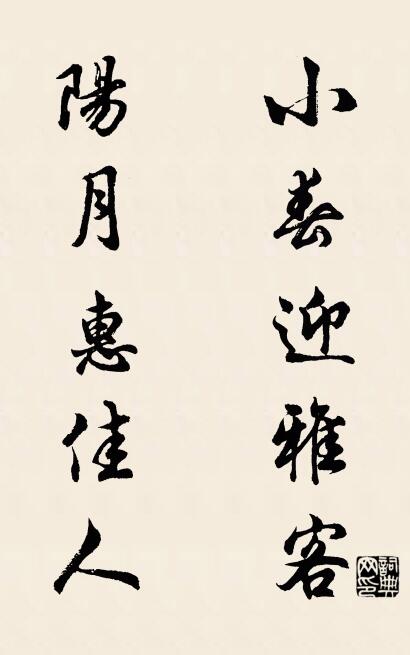 小春迎雅客
陽月惠佳人
詞典网印